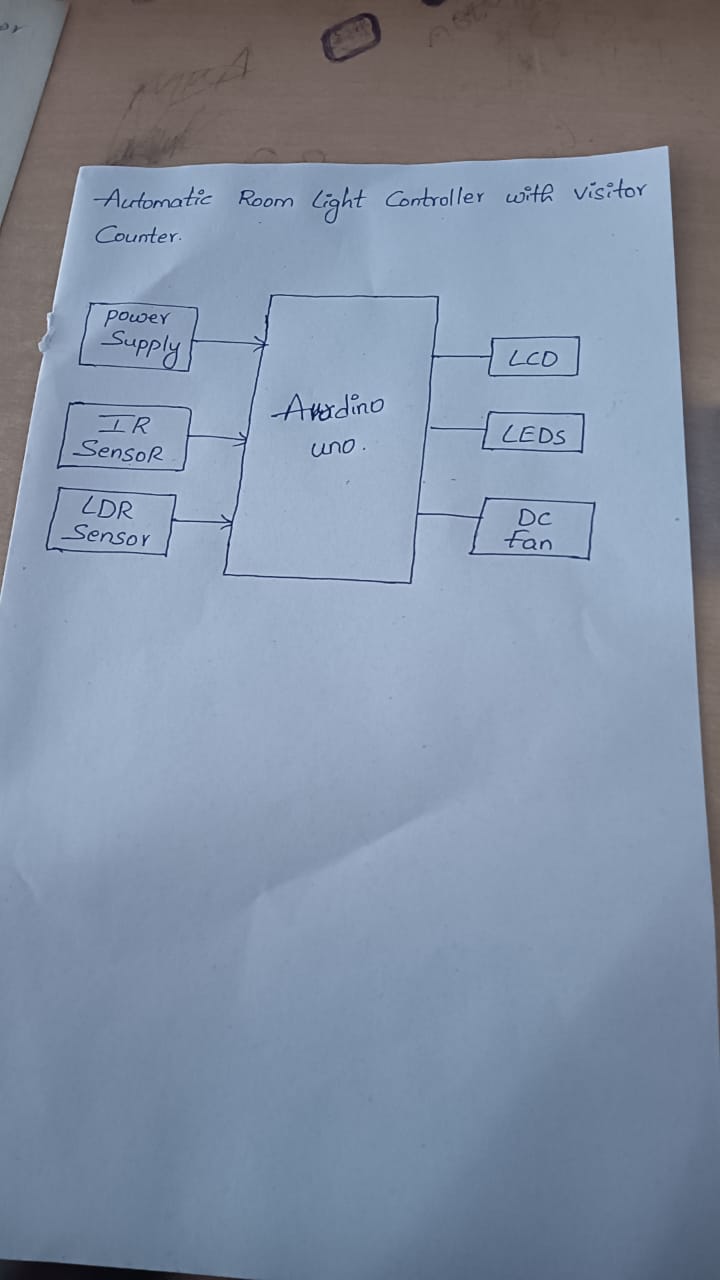 Automatic Room Light Controller with visitor
Counter.
power
Supply
IR
SensoR
LDR
Sensor
Aurdino
uno.
LCD
LEDs
DC
fan